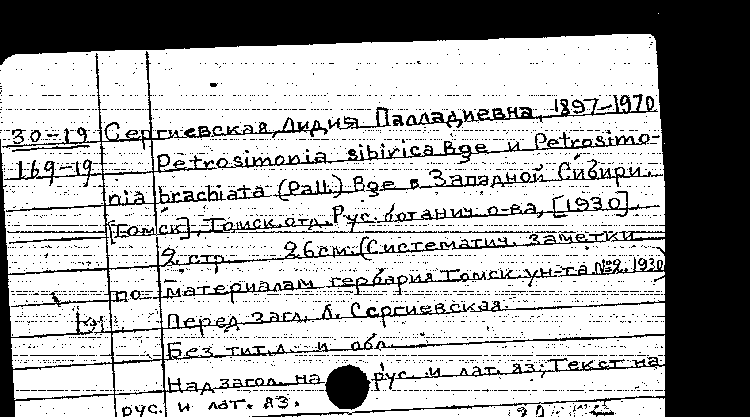 30-19 Сергиевская, Лидия Палладиевна, 1897-1970
169-19 Petrosimonia sibirica Bge и Petrosimo-
nia brachiata (Pall.) Bge в Западной Сибири.
[Томск], Томск. отд. Рус. ботанич. о-ва, [1930].
2 стр. 26см. (Систематич. заметки
по материалам гербария Томск. ун-та №2. 1930)
Перед загл. Л. Сергиевская.
Без тит. л. и обл.
Надзагол. на рус. и лат. яз; Текст на
рус. и лат. яз.